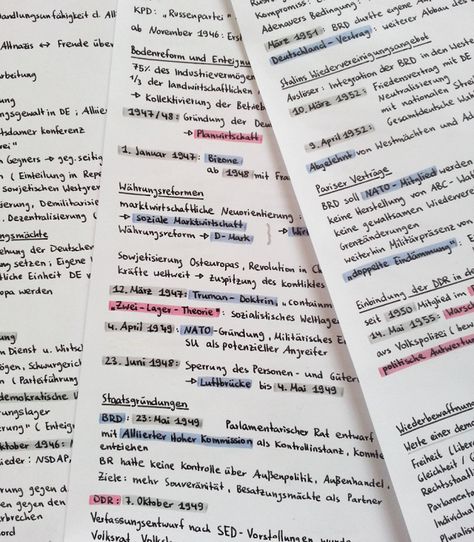 andlungsunfähigkeit d. Al
Alltags ↔ Freude über
rbeitung
ng
ngsgewalt in DE ; Alliier
tsdamer konferenz
rei"
n Gegners → geg. seitig
n ( Einteilung in Rep
sowjetischen Westgren
sierung, Demilitarisi
. Dezentralisierung (
ungsmächte
ehung der Deutschen
ng setzen ; Eigene
tliche Einheit DE v
opa werden
m Dienst u. Wirtsc
ögen, Schwurgerich
n ( Parteiführung
demokratische V
rungslager
erung" ( Enteign
oktober 1946:
lieder : NSDAP,
hrung gegen d
en gegen den
rbrechen
ord
KPD: „Russenpartei"
ab November 1946: Erst
Bodenreform und Enteignu
75% des Industrievermöge
1/3 der landwirtschaftlich
→ Kollektivierung der Betrieb
1947/48: Gründung der Deu
→ Planwirtschaft
1. Januar 1947: Bizone
ab 1948 mit Fra
Währungsreformen
marktwirtschaftliche Neuorientierung :
→ soziale Marktwirtschaft
Währungsreform → D-Mark } → Wir
Sowjetisierung Osteuropas, Revolution in Ch
kräfte weltweit → zuspitzung des konfliktes
12. März 1947: Truman-Doktrin, „Containm
„Zwei-Lager-Theorie": sozialistisches Weltlage
4. April 1949: NATO-Gründung, Militärisches B
SU als potenzieller Angreifer
23. Juni 1948: Sperrung des Personen- und Güter
→ Luftbrücke bis 4. Mai 1949
Staatsgründungen
BRD: 23. Mai 1949 Parlamentarischer Rat entwarf
mit Alliierter Hoher Kommission als Kontrollinstanz, konnte
entziehen
BR hatte keine Kontrolle über Außenpolitik, Außenhandel,
Ziele: mehr Souveränität, Besatzungsmächte als Partner
DDR: 7. Oktober 1949
Verfassungsentwurf nach SED-Vorstellungen wurde
Volksrat
Kompromiss: E
Adenauers Bedingung:
März 1951: BRD durfte eigene Auß
Deutschland-Vertrag: weiterer Abbau des
Stalins Wiedervereinigungsangebot
Auslöser: Integration der BRD in den Weste
10. März 1952: Friedensvertrag mit DE
Neutralisierung
mit nationalen St
Gesamtdeutsche Wah
9. April 1952:
Abgelehnt von Westmächten und Ade
Pariser Verträge
BRD soll NATO-Mitglied werden
keine Herstellung von ABC-Wa
keine gewaltsamen Wiederver
Grenzänderungen
weiterhin Militärpräsenz von
„doppelte Eindämmung":
Einbindung der DDR in d
seit 1950 Mitglied im
14. Mai 1955: Warsch
aus Volkspolizei (
politische Aufwertun
Wiederbewaffnun
Werte einer demo
Freiheit (
Gleichheit (
Rechtsstaat
Parlamen
Individual
Pluralism